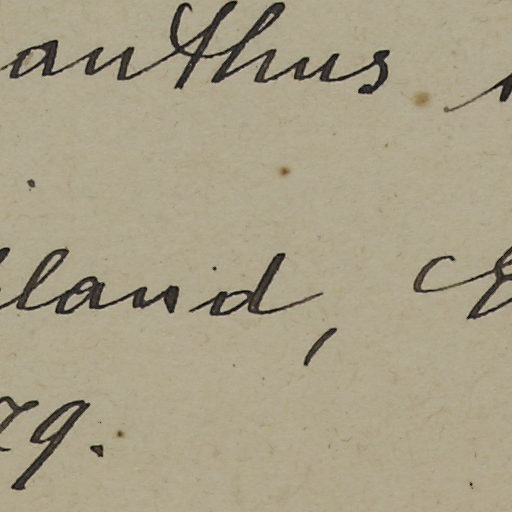 anthus
land,
79.